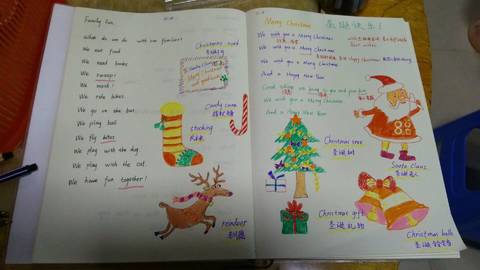 Family Fun
What do we do with our families?
We eat food
We read books
We
We
We ride bikes.
We go on the bus.
We play ball
We fly kites.
We play with the dog.
We play with the cat.
We have fun together!
Christmas card
圣诞卡
Merry Christmas
Candy cane
拐杖糖
stocking
长袜
reindeer
驯鹿
Merry Christmas 圣诞快乐!
We wish you a Merry Christmas
We wish you a Merry Christmas
We wish you a Merry Christmas
And a Happy New Year
Good tidings we bring to you and your kin
We wish you a Merry Christmas
And a Happy New Year
Christmas tree
圣诞树
Santa Claus
圣诞老人
Christmas gift
圣诞礼物
Christmas bells
圣诞铃铛